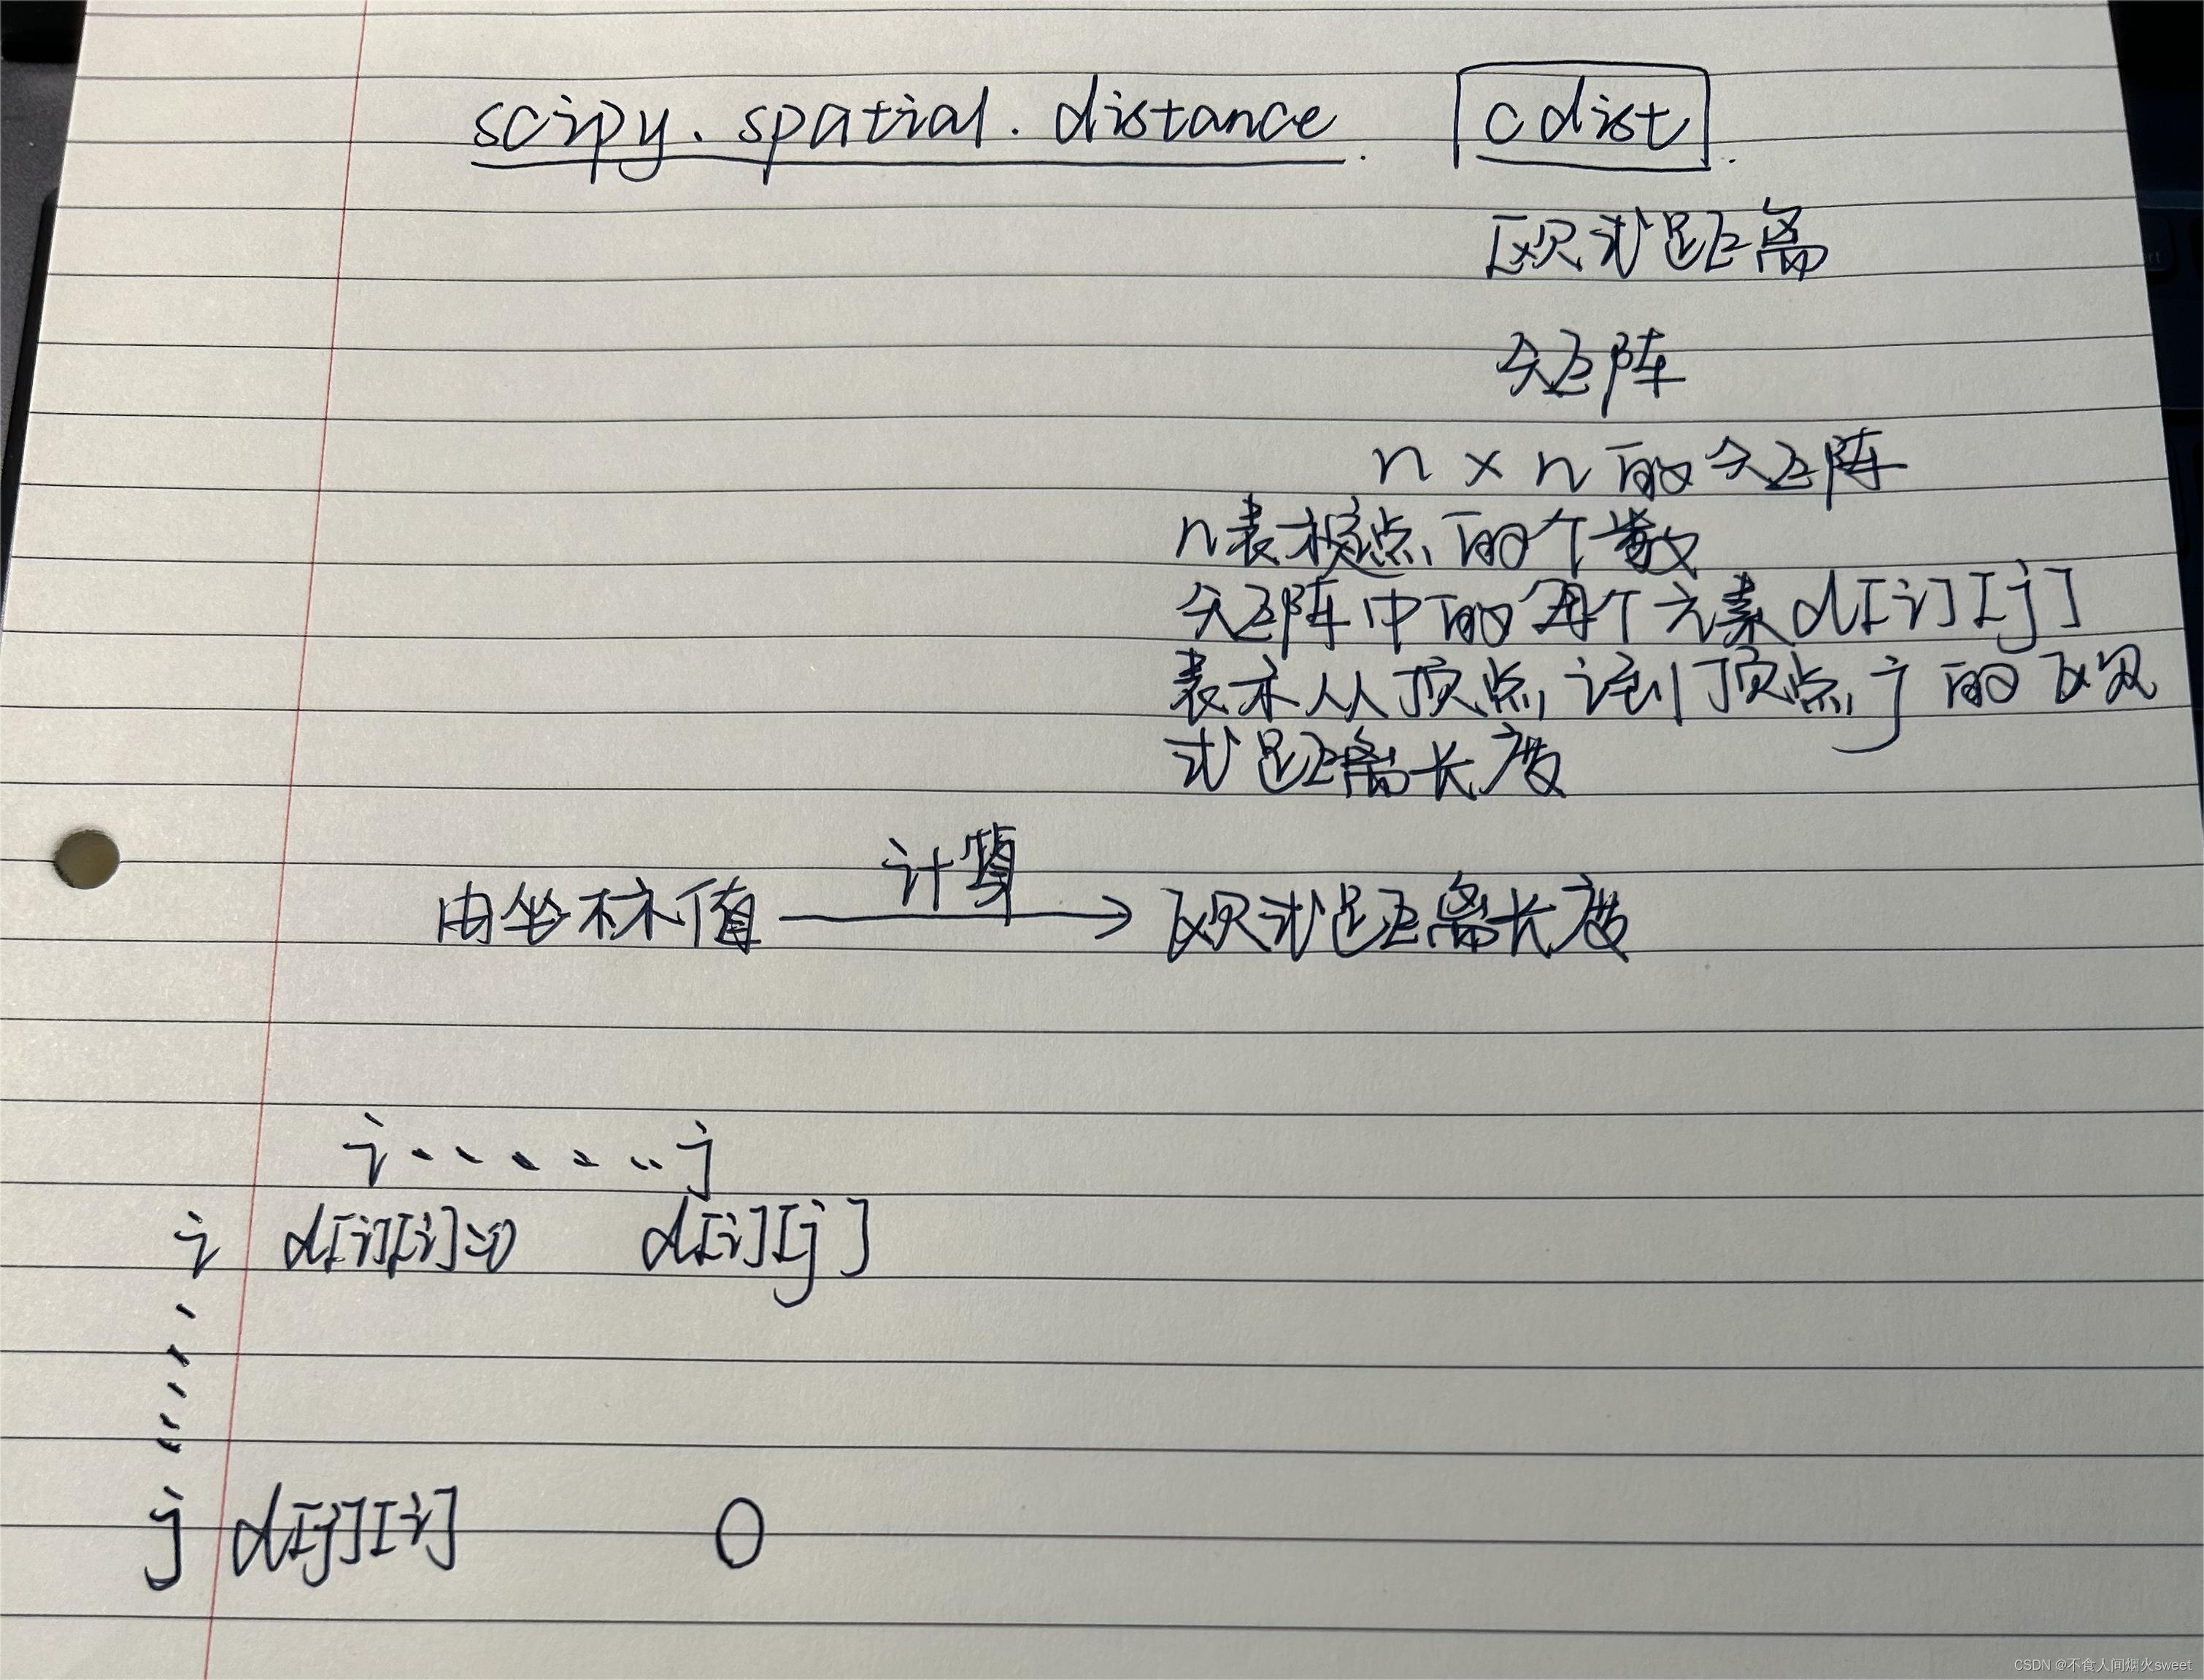 scipy. spatial. distance. cdist.
欧式距离
矩阵
n × n 的矩阵
n表示顶点的个数
矩阵中的每个元素d[i][j]
表示从顶点i到顶点j的欧
式距离长度
计算
由坐标值 → 欧式距离长度
i......j
i d[i][i]=0 d[i][j]
j d[j][i] 0
CSDN @不食人间烟火sweet